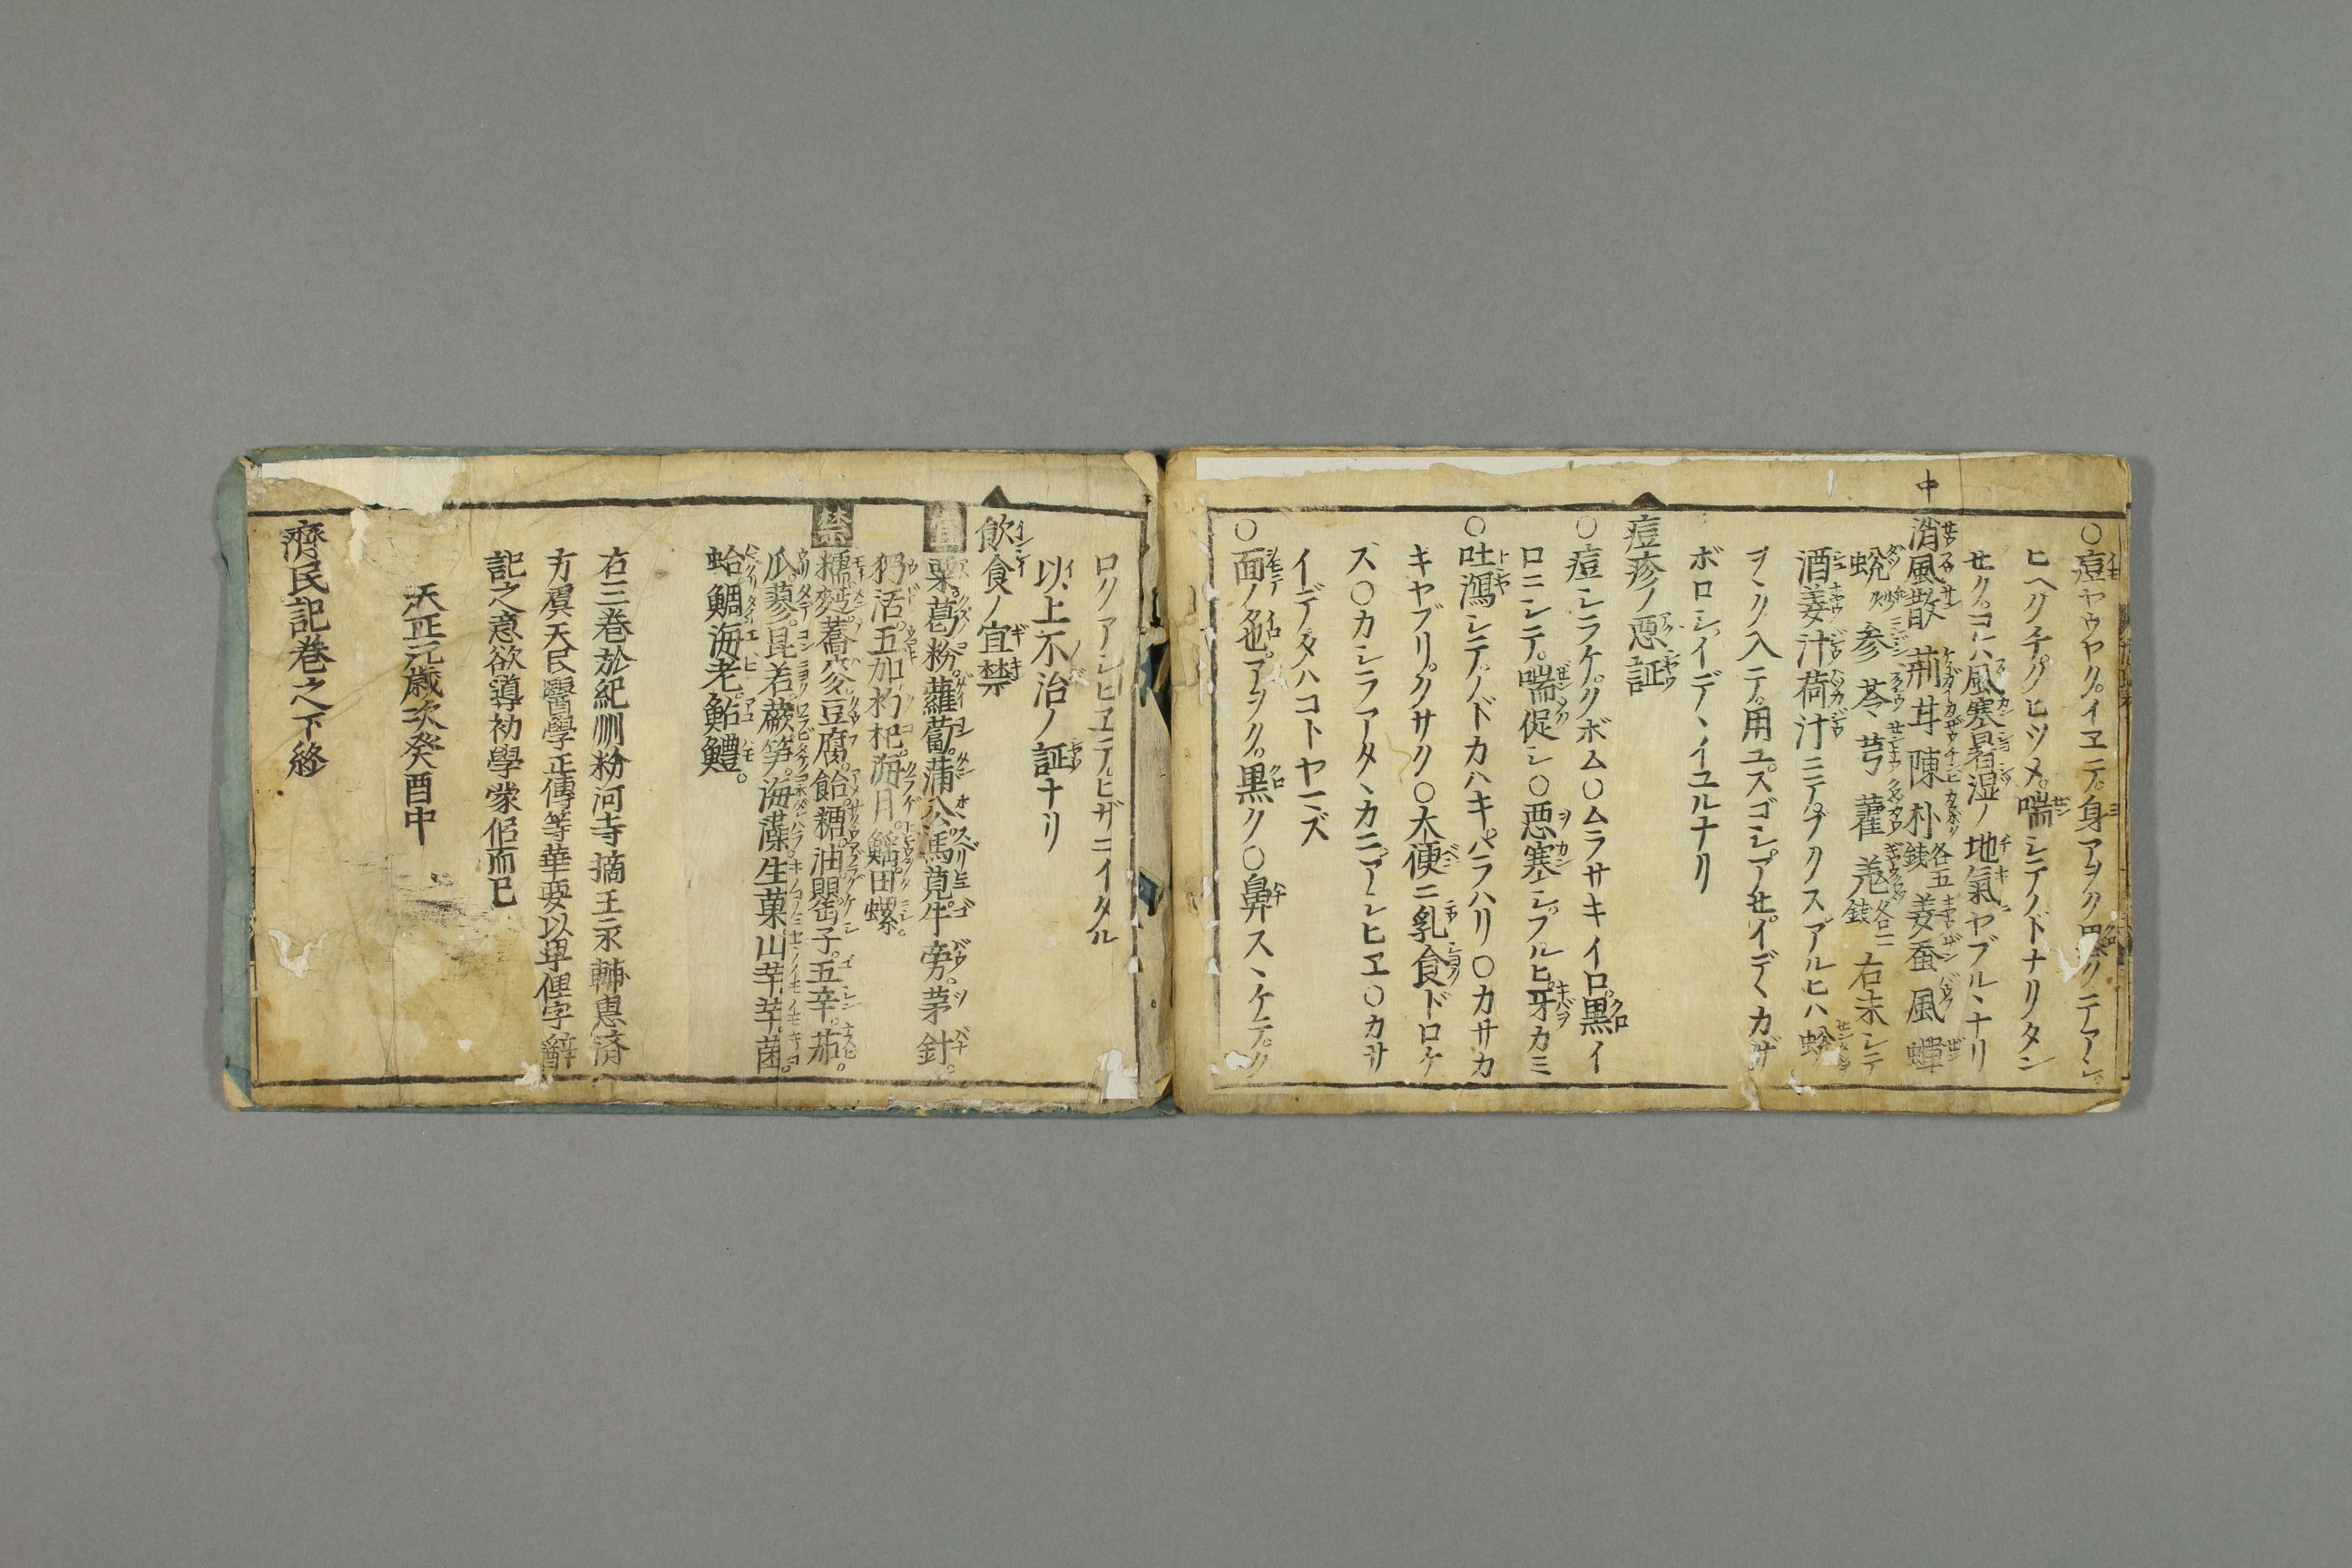 ○痘ヤウヤク。イヱテ。身アヲク黒クニテアシ。
ヒヘクチ。クヒツメ。喘シテノドナリタン
せク。コハ風寒暑湿ノ地氣ヤブル、ナリ
中
消風散 荊 甘 陳 朴 各五銭 姜 蚕 風 蟬
蛻炒 参 苓 芎 藿 羌各二銭 右末シテ
酒姜汁荷汁ニテ。ヌクスアルヒハ
ヲ、ク入テ。用ユ。スゴシ。アせ。イデ、カザ
ボロシ。イデ、イユルナリ
痘疹ノ悪証
○痘シラケ。クボム○ムラサキイロ。黒イ
ロニシテ。喘促シ○悪寒シ。フルヒ。牙カミ
○吐瀉シテ。ノドカハキ。ハラハリ○カサカ
キヤブリ。クサク○大便ニ乳食ドロケ
ズ○カシラアタ、カニ。アシヒエ○カサ
イデタハコトヤマズ
○面ノ色。アヲク。黒ク○鼻ス、ケテ。ク
ロクアシヒヱテ。ヒザニイタル
以上不治ノ証ナリ
飲食ノ宜禁
宜 粟。葛粉。蘿蔔。蒲公。馬莧。牛旁。茅針。
独活。五加。枸杞。海月。田螺。
禁 糯。麪。蕎麥。豆腐。飴。糖。油。罌子。五辛。茄。
瓜。蓼。昆若。蕨。笋。海藻。生菓。山芋。芋。菌。
蛤。鯛。海老。鮎。鱧。
右三巻於紀州粉河寺摘王永輔恵済
方虞天民醫學正傳等華要以卑俚字辭
記之意欲導初學蒙侶而已
天正元歳次癸酉中
濟民記巻之下終